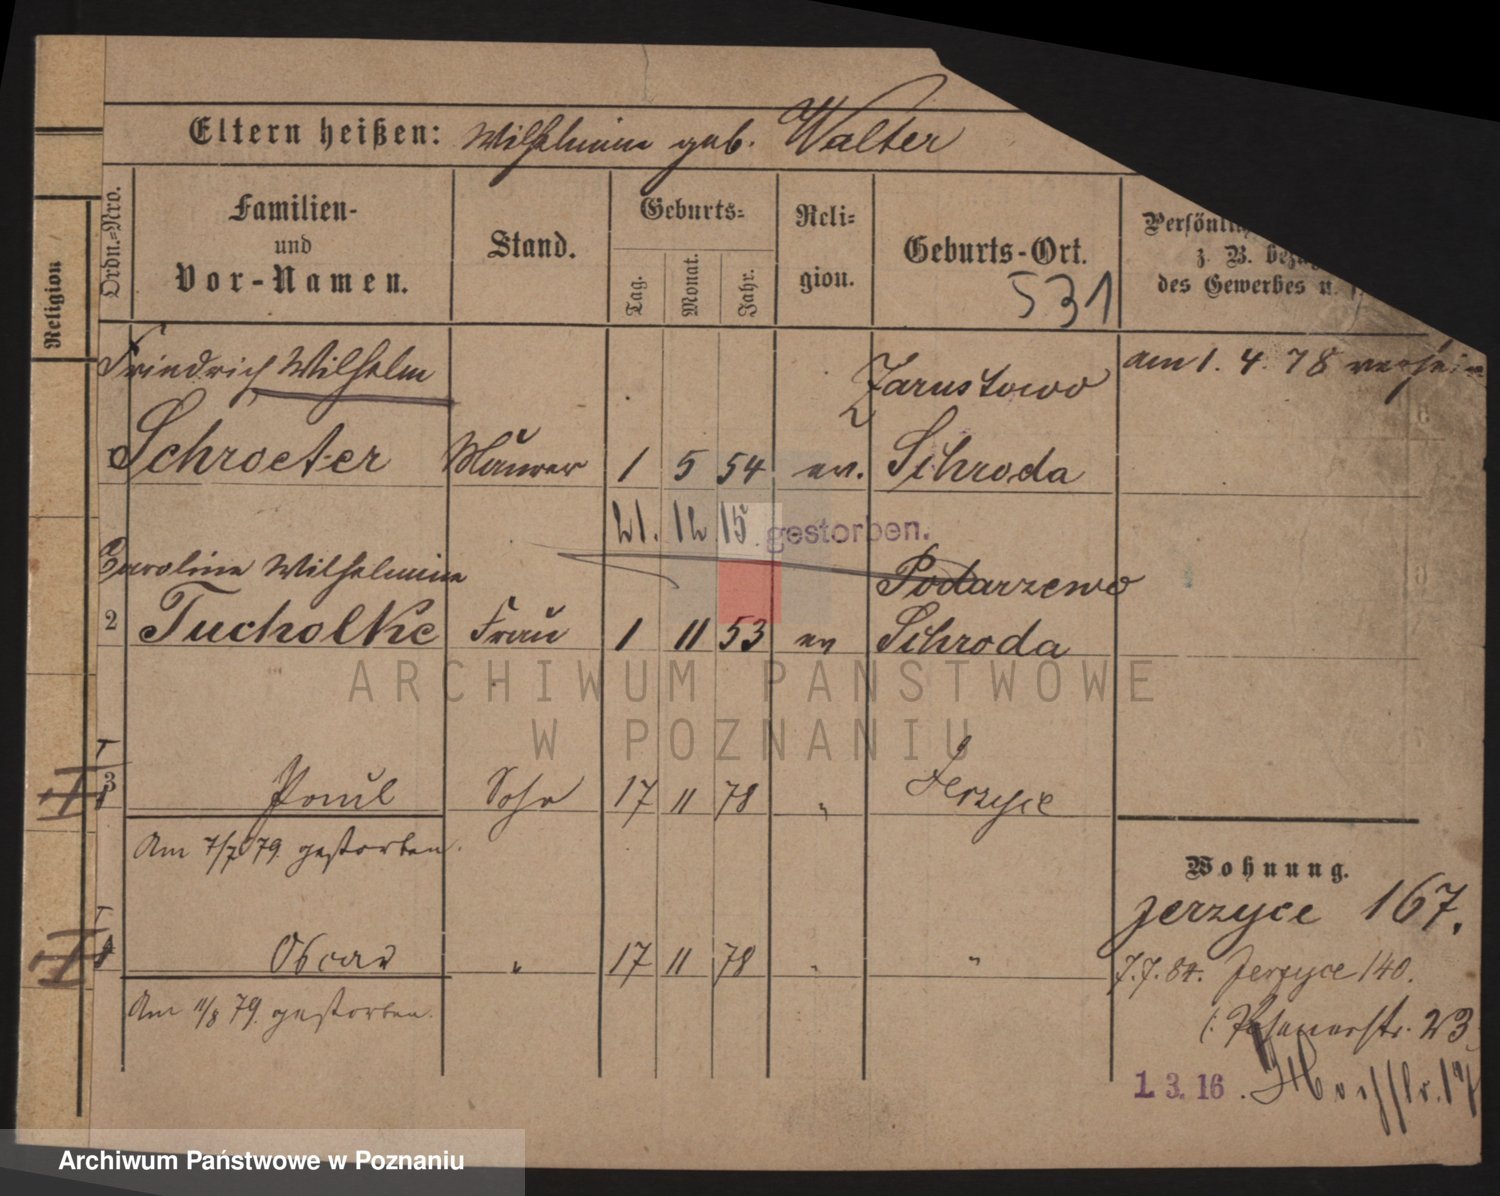 Eltern heißen: Wilhelmine geb. Walter
Religion
Ordn.-Nro.
Familien-
und
Vor-Namen.
Stand.
Geburts-
Tag.
Monat.
Jahr.
Reli-
gion.
Geburts-Ort.
531
Persönli
z. B. bezü
des Gewerbes u.
Friedrich Wilhelm
Schroeter Maurer 1 5 54 ev. Schroda
am 1. 4. 78
21. 12 15 gestorben.
Caroline Wilhelmine Podarzewo
2 Tucholke Frau 1 11 53 ev Schroda
3 Paul Sohn 17 11 78 " Jerzyce
Am 7/7 79. gestorben.
4 Oscar " 17 11 78 " "
Am 11/8 79. gestorben.
Wohnung.
Jerzyce 167.
7.7.84. Jerzyce 140.
(: Posenerstr. 23
1. 3. 16.
ARCHIWUM PAŃSTWOWE
W POZNANIU
Archiwum Państwowe w Poznaniu